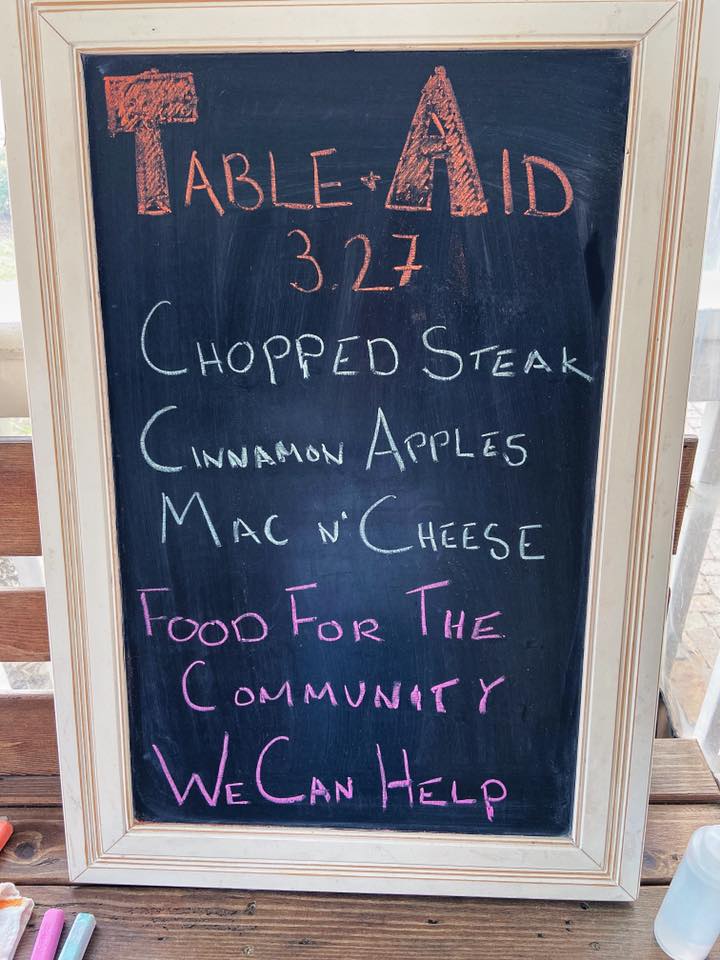 TABLE + AID
3.27
CHOPPED STEAK
CINNAMON APPLES
MAC N' CHEESE
FOOD FOR THE
COMMUNITY
WE CAN HELP